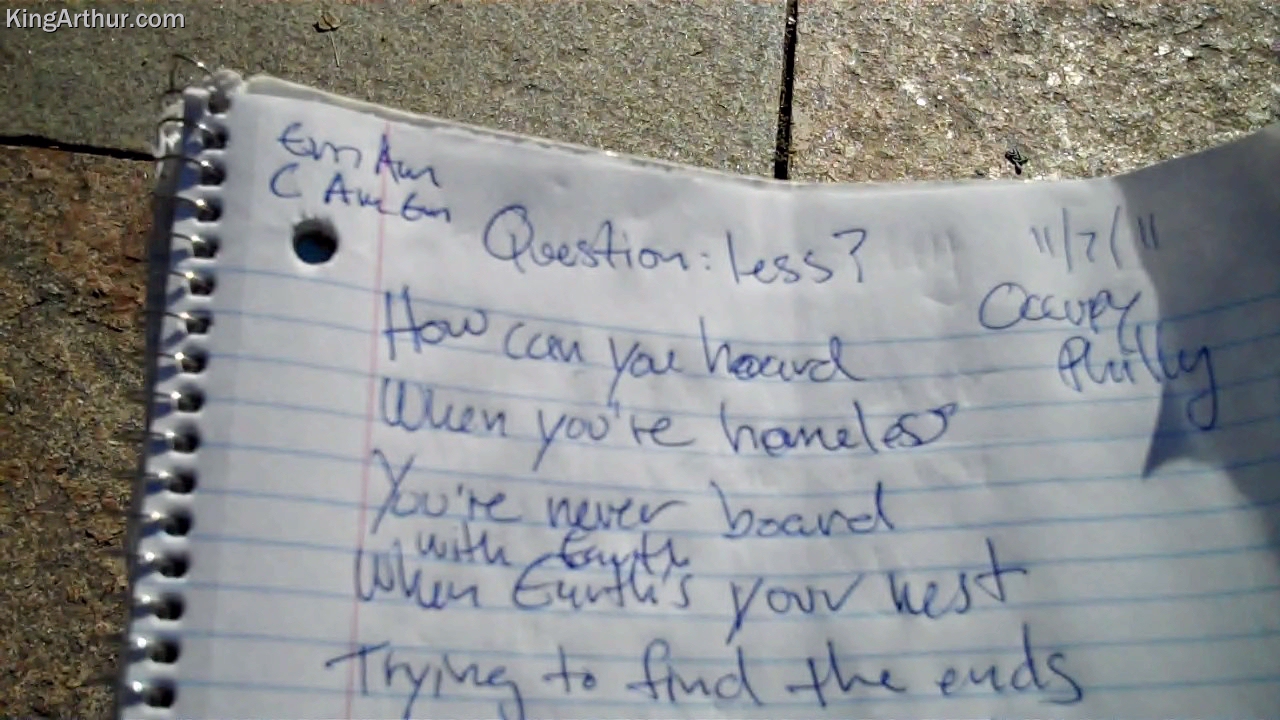 KingArthur.com
Em Am
C Am Em
Question: less?
11/7/11
Occupy
Philly
How can you hoard
When you're homeless
You're never board
with Earth
When Earth's your nest
Trying to find the ends